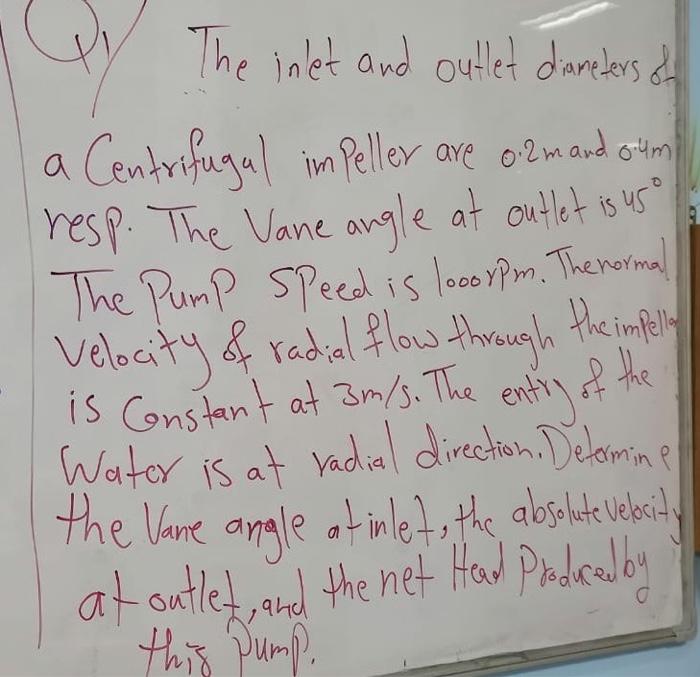 Q1/ The inlet and outlet diameters of
a Centrifugal impeller are 0.2m and 0.4m
resp. The Vane angle at outlet is 45°
The Pump Speed is 1000rpm. The normal
Velocity of radial flow through the impeller
is Constant at 3m/s. The entry of the
Water is at radial direction. Determine
the Vane angle at inlet, the absolute velocity
at outlet, and the net Head Produced by
this Pump.